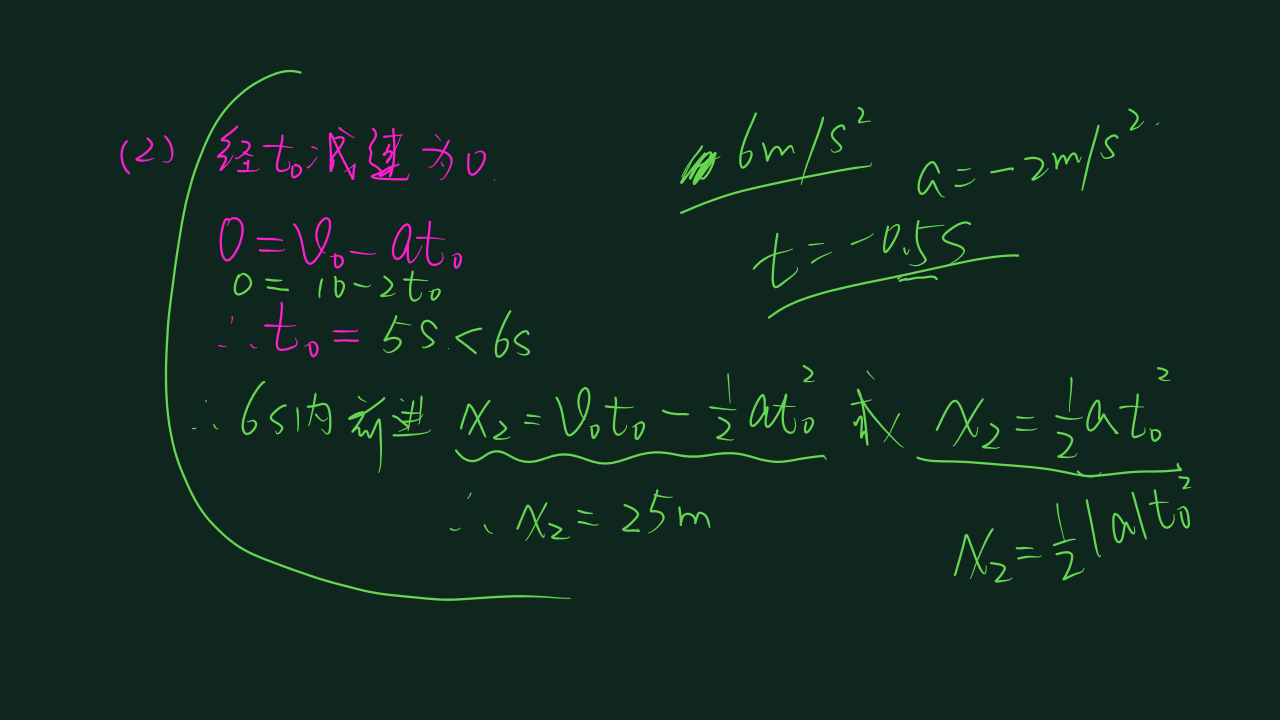 (2) 经t₀减速为0.
0=v₀-at₀
0=10-2t₀
∴t₀=5s<6s
∴6s内前进 x₂=v₀t₀-½at₀² 或 x₂=½at₀²
∴x₂=25m
x₂=½|a|t₀²
6m/s²
a=-2m/s²
t=-0.5s